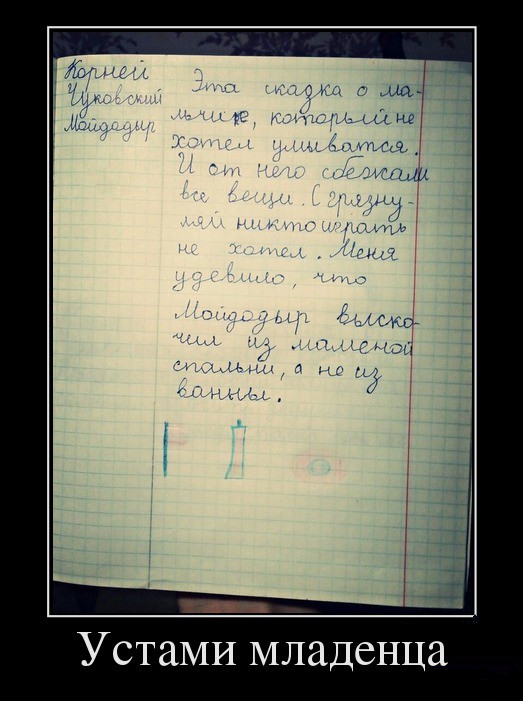 Корней
Чуковский
Мойдодыр
Эта скадка о ма-
льчике, который не
хотел умыватся.
И от него сбежали
все вещи. С грязну-
лей никто играть
не хотел. Меня
удевило, что
Мойдодыр выско-
чил из маменой
спальни, а не из
ванны.
Устами младенца